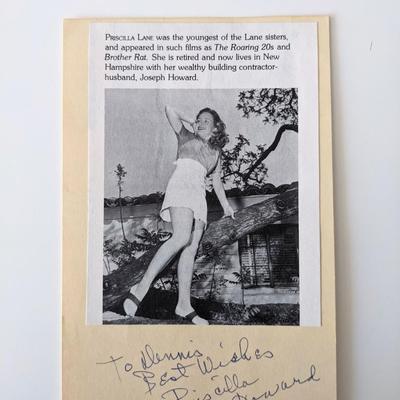 PRISCILLA LANE was the youngest of the Lane sisters,
and appeared in such films as The Roaring 20s and
Brother Rat. She is retired and now lives in New
Hampshire with her wealthy building contractor-
husband, Joseph Howard.
To Dennis
Best Wishes
Priscilla
Howard